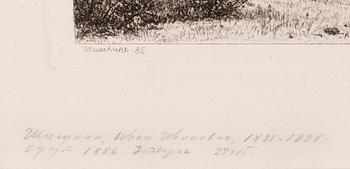 Шишкинъ 86
Шишкин, Иван Иванович, 1831-1898.
Офорт. 1886. 27×15